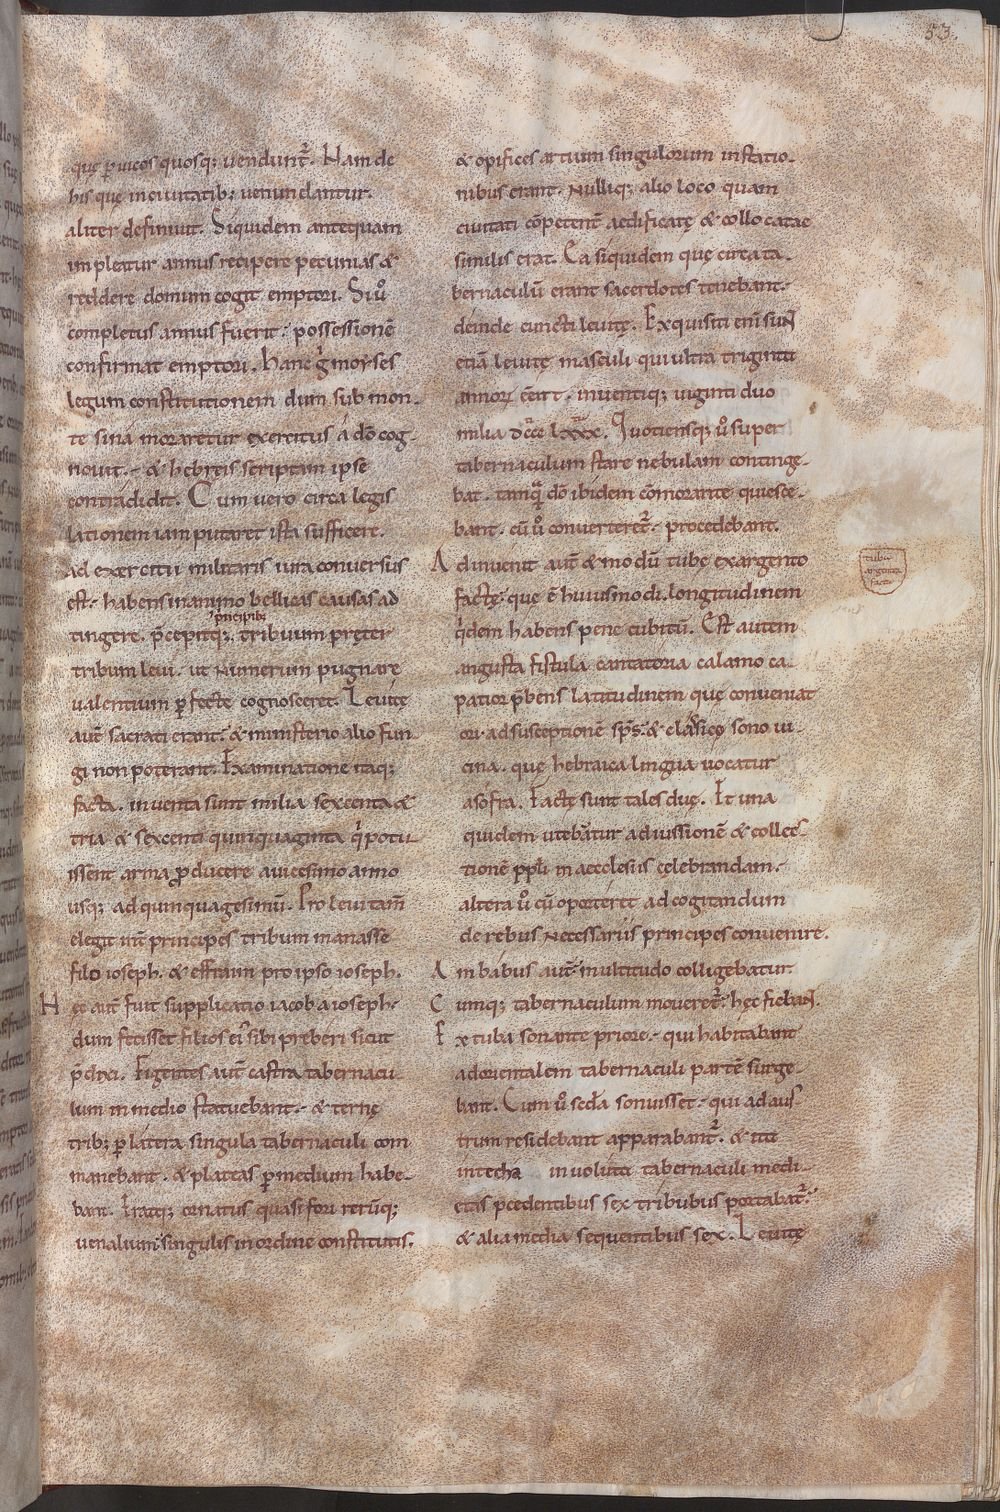 53
quę ꝑ uicos quosq; uendunt᷑. Nam de
his quę in ciuitatib; uenundantur.
aliter definiuit. Siquidem antequam
impleatur annus recipere pecunias &
reddere domum cogit emptori. Si u͛o
completus annus fuerit: possessionē
confirmat emptori. Hanc g̊ moyses
legum constitutionem dum sub mon-
te sina moraretur exercitus a dō cog-
nouit. & hebreis scriptam ipse
contradidit. Cum uero circa legis
lationem iam putaret ista sufficere.
ad exercitii militaris iura conuersus
est. habens in animo bellicas causas ad
tingere. p̄cepitq; principib; tribuum pręter
tribum leui. ut Numerum pugnare
ualentium ꝑfecte cognosceret. Leuitę
aut̄ sacrati erant. & ministerio alio fun
gi non poterant. Examinatione itaq;
facta. inuenta sunt milia sexcenta &
tria & sexcenti quinquaginta q̇ potu-
issent arma ꝓducere a uicesimo anno
usq; ad quinquagesimū. Pro leui tam̄
elegit int̄ principes tribum manasse
filii ioseph. & effraim pro ipso ioseph.
Hęc aut̄ fuit supplicatio iacob a ioseph.
dum fecisset filios ei᷒ sibi preberi sicut
p̄dixi. Figentes aut̄ castra tabernacu-
lum in medio statuebant. & ternę
trib; ꝑ latera singula tabernaculi com
manebant. & plateas ꝑ medium habe-
bant. Eratq; ornatus quasi fori rerūq;
uenalium. singulis in ordine constitutis.
& opifices artium singulorum in statio-
nibus erant. Nulliq; alio loco quam
ciuitati cōpetent̄ aedificatę & collocatae
similis erat. Ea siquidem quę circa ta-
bernaculū erant sacerdotes tenebant.
deinde cuncti leuitę. Exquisiti eni sunt
etiā leuitę masculi qui ultra triginta
annorꝝ ēent. inuentiq; uiginti duo
milia dccc lxxx. Quotiensq; u͛o super
tabernaculum stare nebulam continge-
bat. tamquā dō ibidem cōmorante quiesce-
bant. cū u͛o conuerteret᷑. procedebant.
Adinuenit aut̄ & modū tubę ex argento
factę. que ē huiusmodi. longitudinem
q̇dem habens pene cubitū. Est autem
angusta fistula cantatoria calamo ca-
patior p̄bens latitudinem quę conueniat
ori. ad susceptionē sp̄s. & classicę sono ui-
cina. quę hebraica lingua uocatur
asofra. Factę sunt tales duę. Et una
quidem utebatur ad iussionē & collec-
tionē ppl̄i in aecclesiis celebrandam.
altera u͛o cū oporteret ad cogitandum
de rebus Necessariis principes conuenire.
Ambabus aut̄ multitudo colligebatur.
Cumq; tabernaculum moueret᷑. hęc fiebant.
Ex tuba sonante priore. qui habitabant
ad orientalem tabernaculi partē surge-
bant. Cum u͛o sed̄a sonuisset. qui ad aus
trum residebant apparabant᷑. & ita
intecta inuoluta tabernaculi medi-
etas p̄cedentibus sex tribubus portabat᷑.
& alia media sequentibus sex. Leuitę
tubae
argenteae
factae